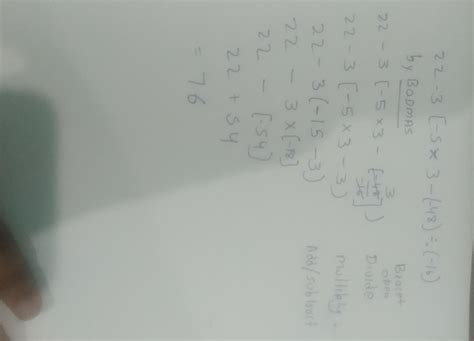 22 - 3 [-5 × 3 - (-48) ÷ (-16)
by BODMAS
22 - 3 [-5 × 3 - [-48/-16])
3
22 - 3 [-5 × 3 - 3)
22 - 3 (-15 - 3)
22 - 3 × [-18]
22 - [-54]
22 + 54
= 76
Bracket
open
Divide
Multiply
Add/subtract